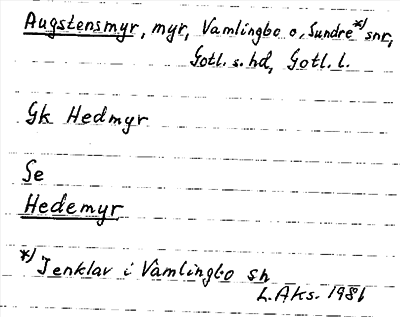 Augstensmyr, myr, Vamlingbo o. Sundre *) snr,
Gotl. s. hd, Gotl. l.
Gk Hedmyr
Se
Hedemyr
*) Jenklav i Vamlingbo sn
L. Aks. 1981